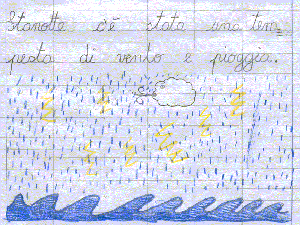 Stanotte c'è stata una tem=
pesta di vento e pioggia.